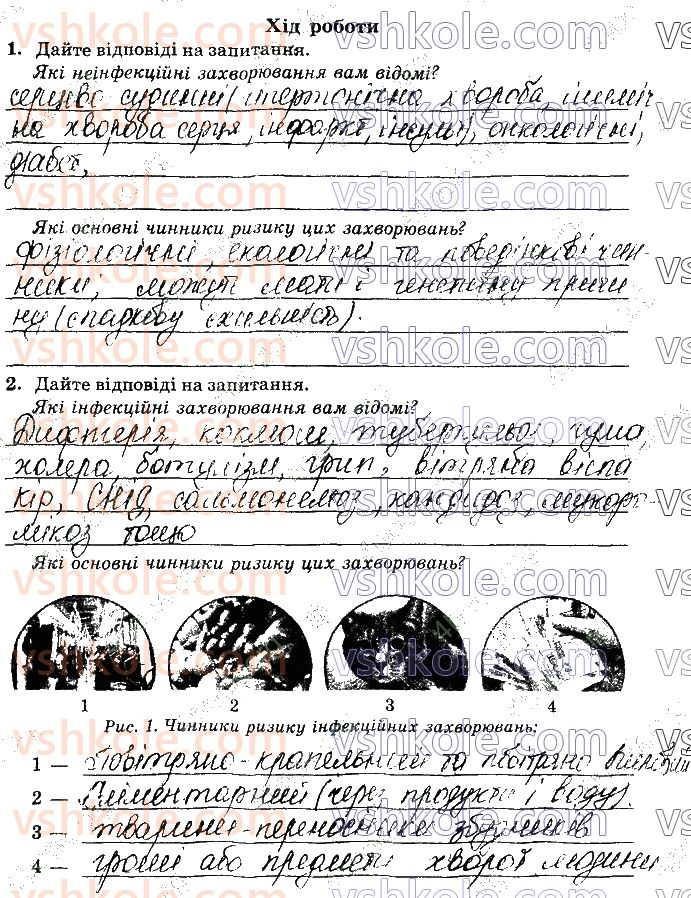 Хід роботи
1. Дайте відповіді на запитання.
Які неінфекційні захворювання вам відомі?
серцево судинні (гіпертонічна хвороба, ішеміч-
на хвороба серця, інфаркт, інсульт), онкологічні,
діабет,
Які основні чинники ризику цих захворювань?
фізіологічні, екологічні та поведінкові чин-
ники, можуть мати і генетичну причи
ну (спадкову схильність).
2. Дайте відповіді на запитання.
Які інфекційні захворювання вам відомі?
Дифтерія, коклюш, туберкульоз, чума,
холера, ботулізм, грип, вітряна віспа
кір, СНІД, сальмонельоз, кандидоз, мукор-
мікоз тощо
Які основні чинники ризику цих захворювань?
1 2 3 4
Рис. 1. Чинники ризику інфекційних захворювань:
1 — Повітряно-крапельний та повітряно
2 — Аліментарний (через продукти і воду).
3 — тварини-переносники збудників
4 — гроші або предмети хворої людини
vshkole.com